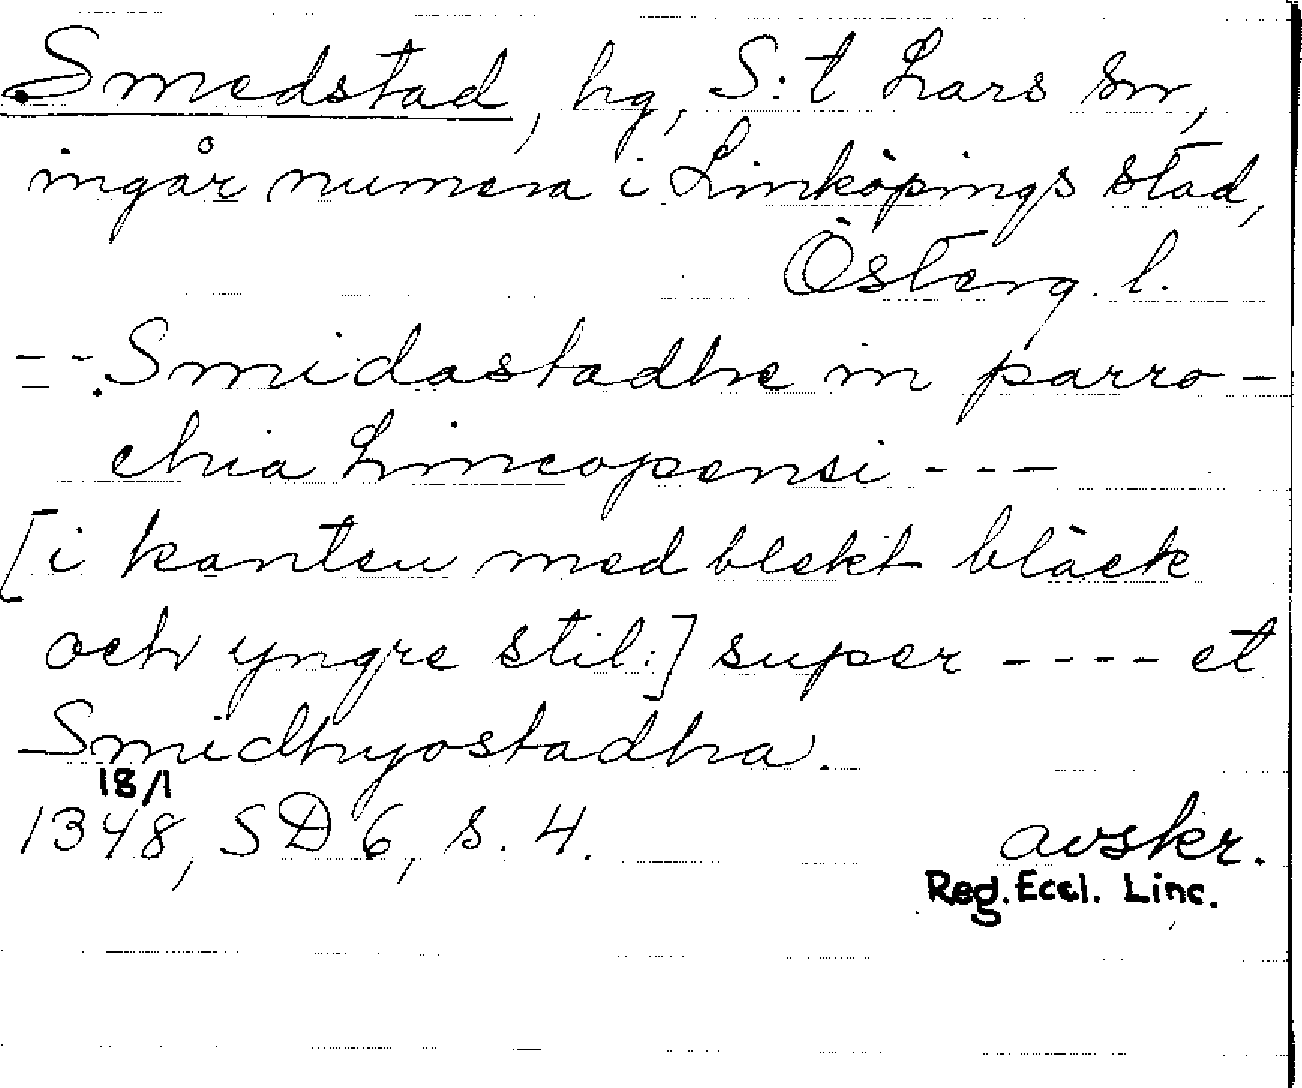 Smedstad, hg, S:t Lars sn,
ingår numera i Linköpings stad,
Österg. l.
--- Smidastadhe in parro-
chia Lincopensi ---
[i kanten med blekt bläck
och yngre stil:] super ---- et
Smidhyostadha.
18/1
1348, SD 6, s. 4. avskr.
Reg. Eccl. Linc.